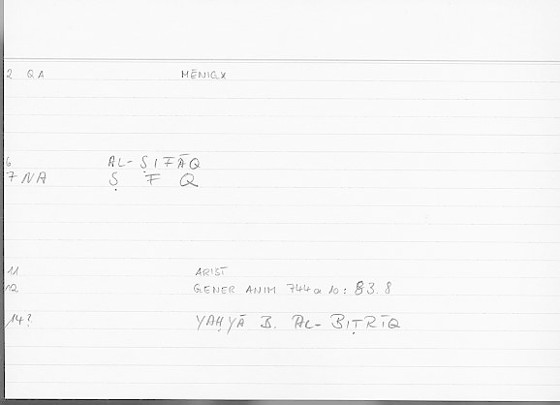 2 QA MENIGX
6 AL-ṢIFĀQ
7 NA Ṣ F Q
11 ARIST
12 GENER ANIM 744a 10: 83.8
14? YAḤYĀ B. AL-BIṬRĪQ